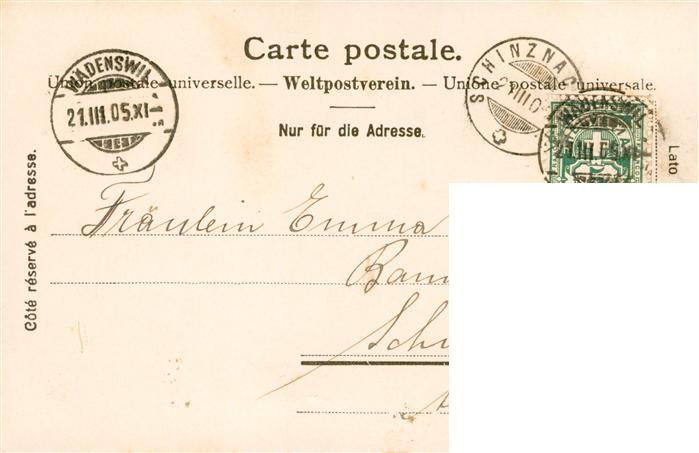 Carte postale.
Union postale universelle. — Weltpostverein. — Unione postale universale.
Nur für die Adresse.
WÄDENSWIL
21.III.05.XI
SCHINZNAC
21.III.0
WÄDENSWIL
21.III.05.XI
Côté réservé à l'adresse.
Lato
Fräulein Emma